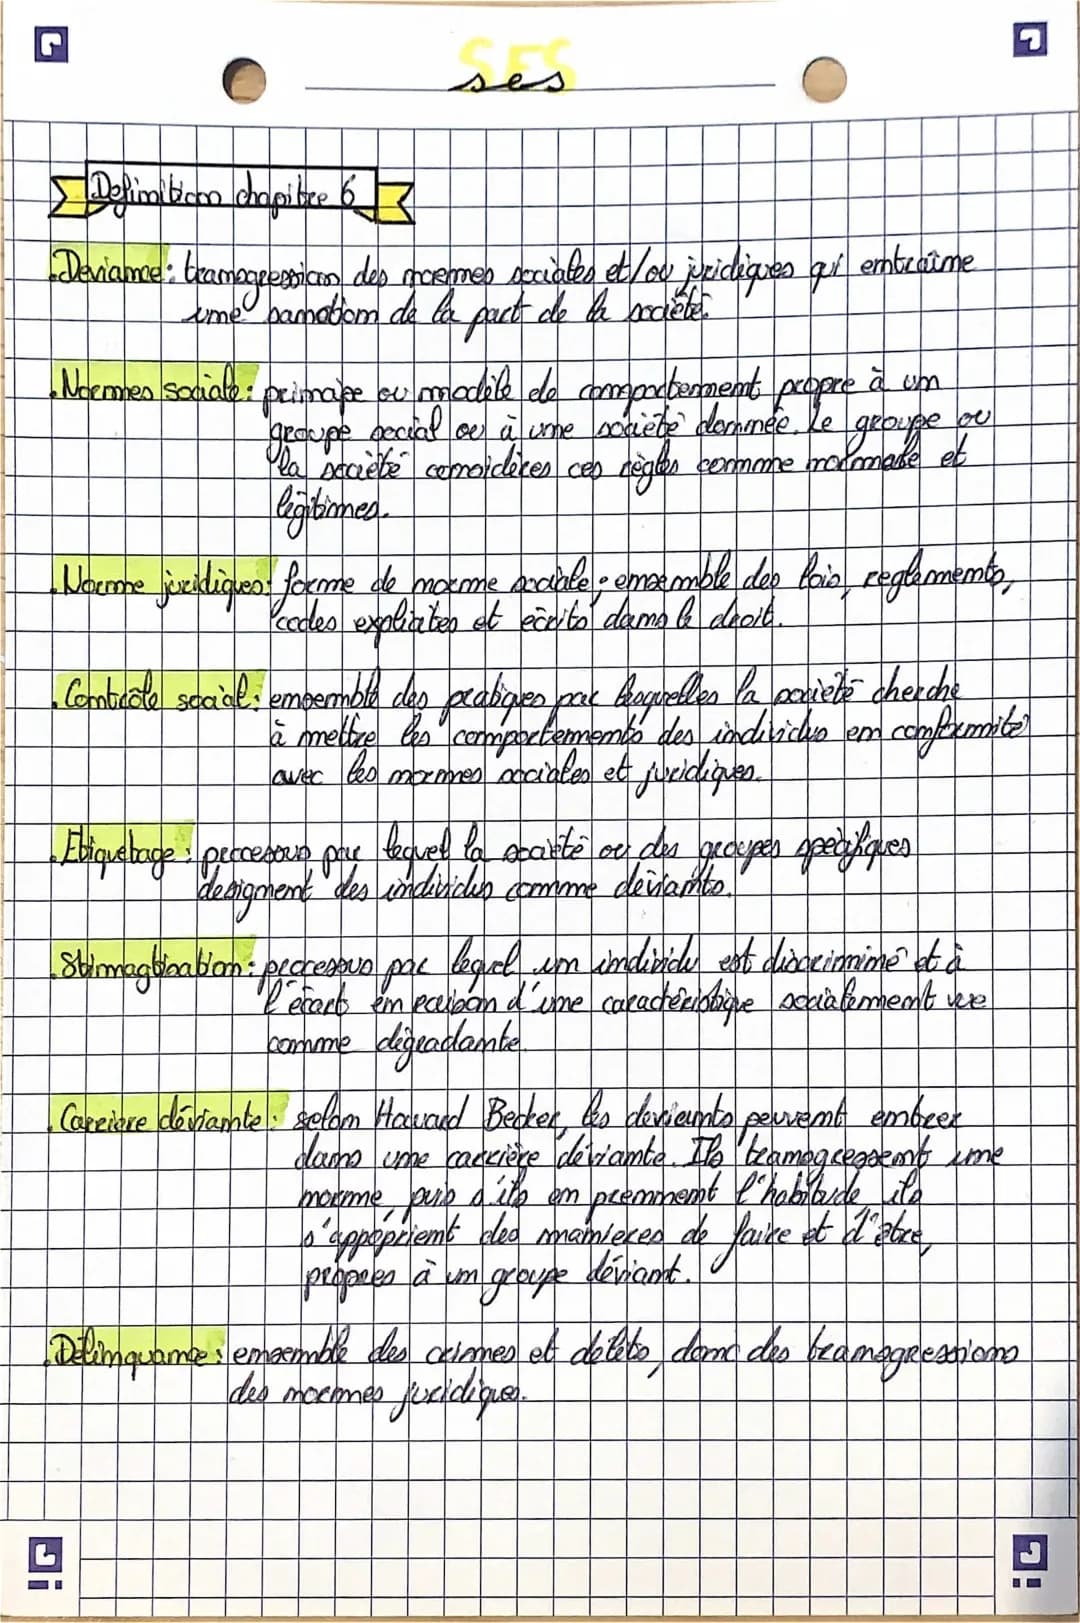 SES
ses
Définition chapitre 6
.Deviance: transgression des normes sociales et/ou juridiques qui entraîne
une sanction de la part de la société.
.Normes sociale: principe ou modèle de comportement propre à un
groupe social ou à une société donnée. Le groupe ou
la société considères ces règles comme normale et
légitimes.
.Norme juridiques: forme de norme sociale; ensemble des lois, reglements,
codes explicites et écrits dans le droit.
.Contrôle social: ensemble des pratiques par lesquelles la société cherche
à mettre les comportements des individus en conformité
avec les normes sociales et juridiques.
.Etiquetage: processus par lequel la société ou des groupes spécifiques
designent des individus comme déviants.
.Stinmagtisation: processus par lequel un individu est discriminé et à
l'écart en raison d'une caractéristique socialement vue
comme dégradante.
.Carrière déviante: selon Howard Becker, les deviants peuvent entrer
dans une carrière déviante. Ils transgressent une
norme, puis s'ils en prennent l'habitude, ils
s'approprient des manieres de faire et d'être,
propres à un groupe déviant.
.Délinquance: ensemble des crimes et délits, donc des transgressions
des normes juridiques.